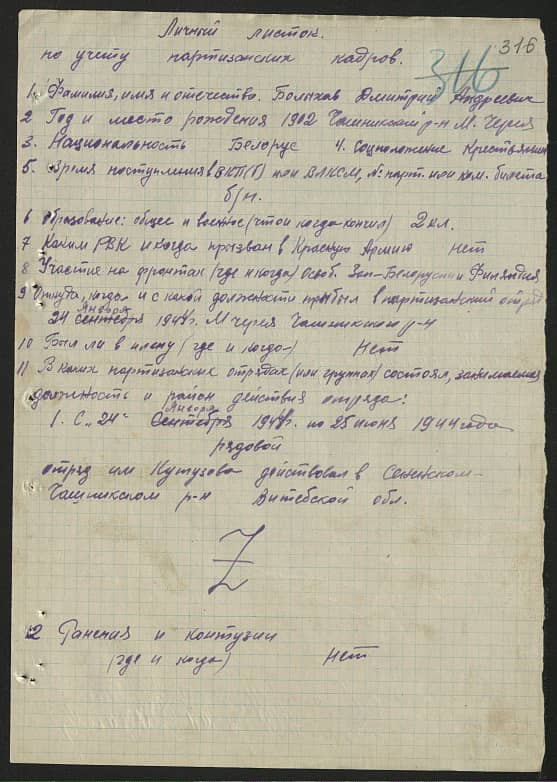 316
316
Личный листок
по учету партизанских кадров.
1. Фамилия, имя и отечество. Болыхов Дмитрий Андреевич
2 Год и место рождения 1902 Чашникский р-н М. Черея
3. Национальность Белорус 4. Соцположение Крестьянин
5. Время поступления в ВКП(б) или ВЛКСМ, № парт. или ком. билета
б/п.
6 Образование: общее и военное (что и когда кончил) 2 кл.
7 Каким РВК и когда призван в Красную Армию нет
8 Участие на фронтах (где и когда) Освоб. Зап-Белоруссии и Финляндия
9 Откуда, когда и с какой должности прибыл в партизанский отряд
Января
24 сентября 194 г. М Черея Чашникского р-н
10 Был ли в плену (где и когда) Нет
11 В каких партизанских отрядах (или группах) состоял, занимаемая
должность и район действия отряда:
Января
1. С "24" Сентября 194 г. по 25 июня 1944 года
рядовой
отряд им Кутузова действовал в Сенненском-
Чашникском р-н Витебской обл.
Z
12 Ранения и контузии
(где и когда) Нет